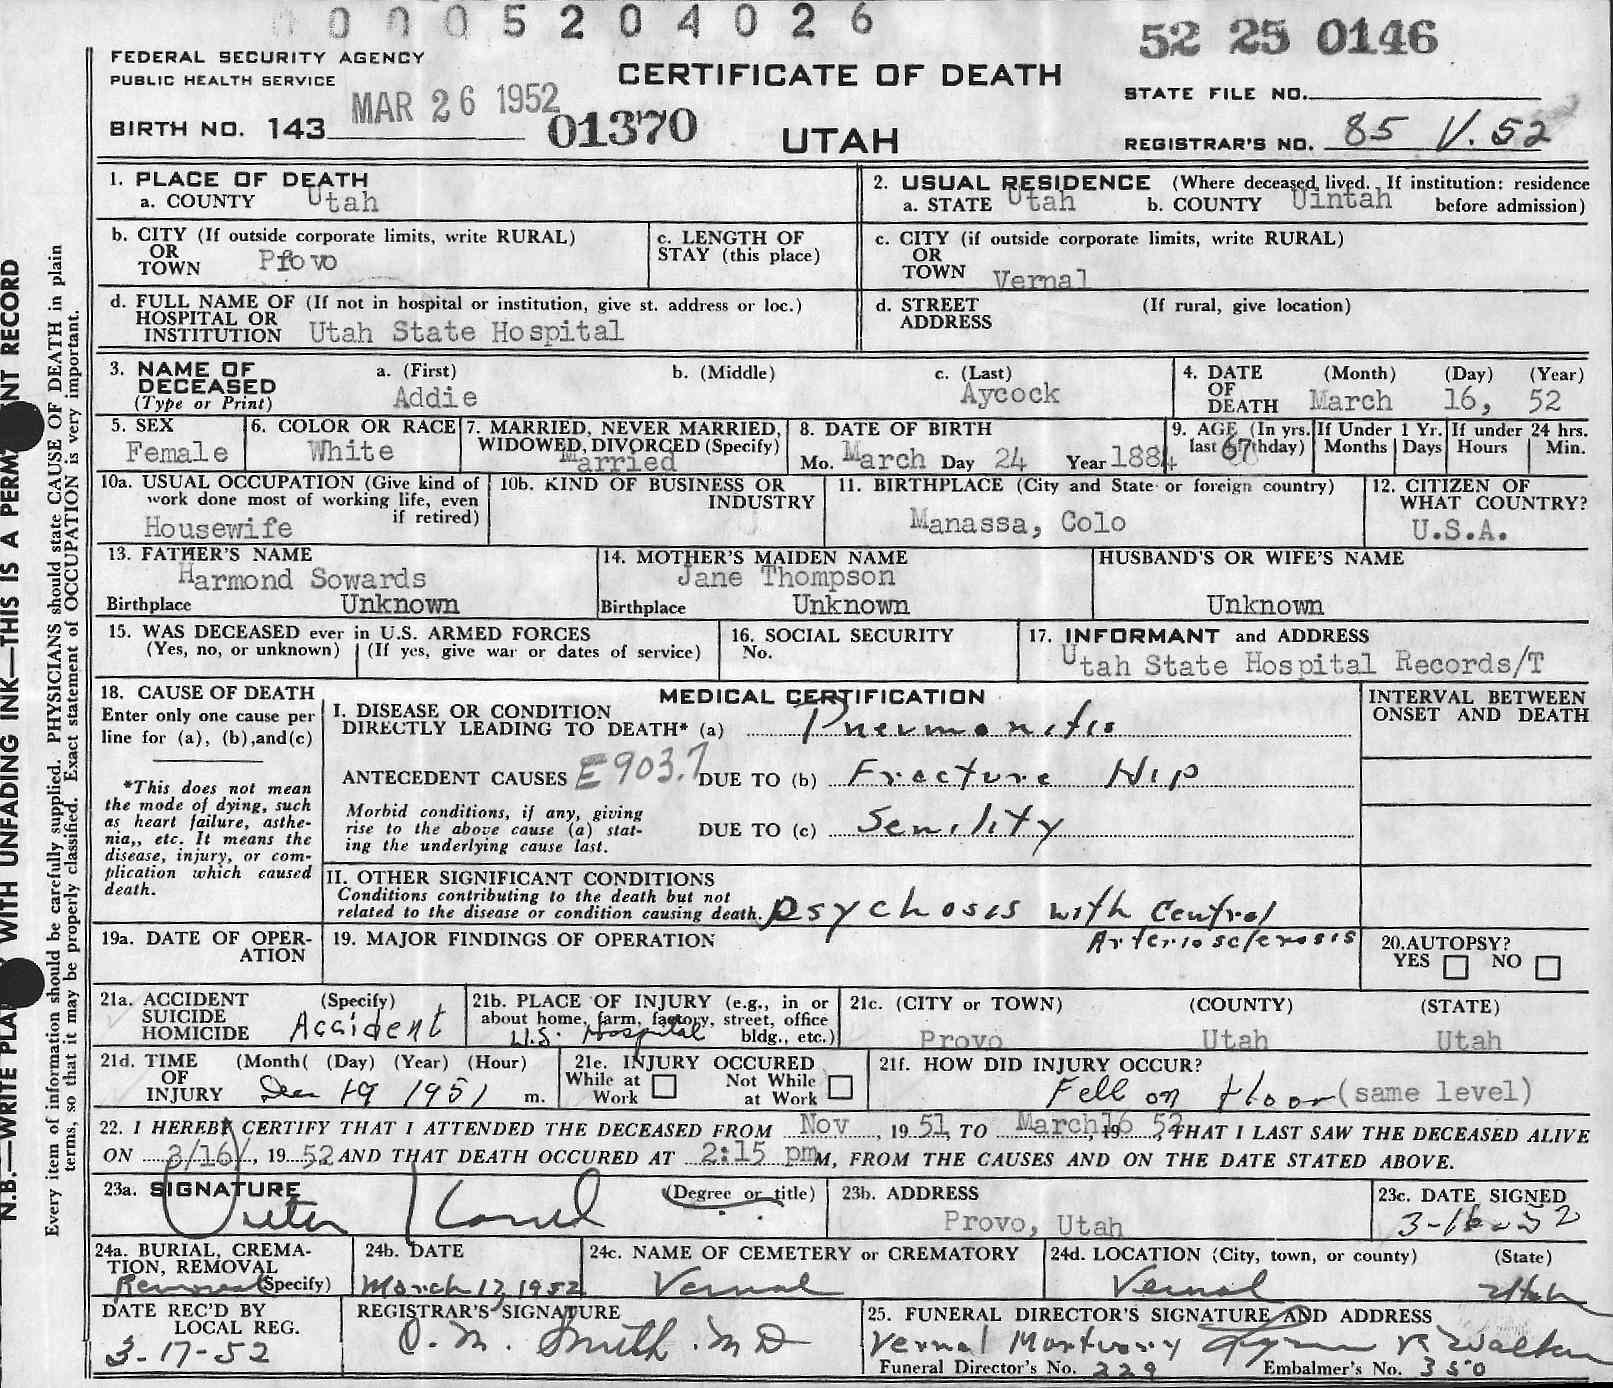 0 0 0 5 2 0 4 0 2 6
52 25 0146
FEDERAL SECURITY AGENCY
PUBLIC HEALTH SERVICE
CERTIFICATE OF DEATH
STATE FILE NO.
MAR 26 1952
BIRTH NO. 143
01370
UTAH
REGISTRAR'S NO. 85 V. 52
1. PLACE OF DEATH
a. COUNTY Utah
2. USUAL RESIDENCE (Where deceased lived. If institution: residence before admission)
a. STATE Utah b. COUNTY Uintah
b. CITY (If outside corporate limits, write RURAL)
OR
TOWN Provo
c. LENGTH OF
STAY (this place)
c. CITY (if outside corporate limits, write RURAL)
OR
TOWN Vernal
d. FULL NAME OF (If not in hospital or institution, give st. address or loc.)
HOSPITAL OR
INSTITUTION Utah State Hospital
d. STREET (If rural, give location)
ADDRESS
3. NAME OF
DECEASED
(Type or Print)
a. (First) b. (Middle) c. (Last)
Addie Aycock
4. DATE (Month) (Day) (Year)
OF
DEATH March 16, 52
5. SEX
Female
6. COLOR OR RACE
White
7. MARRIED, NEVER MARRIED,
WIDOWED, DIVORCED (Specify)
Married
8. DATE OF BIRTH
Mo. March Day 24 Year 1884
9. AGE (In yrs. last birthday) 67
If Under 1 Yr.
Months Days
If under 24 hrs.
Hours Min.
10a. USUAL OCCUPATION (Give kind of
work done most of working life, even
if retired)
Housewife
10b. KIND OF BUSINESS OR
INDUSTRY
11. BIRTHPLACE (City and State or foreign country)
Manassa, Colo
12. CITIZEN OF
WHAT COUNTRY?
U.S.A.
13. FATHER'S NAME
Harmond Sowards
Birthplace Unknown
14. MOTHER'S MAIDEN NAME
Jane Thompson
Birthplace Unknown
HUSBAND'S OR WIFE'S NAME
Unknown
15. WAS DECEASED ever in U.S. ARMED FORCES
(Yes, no, or unknown) (If yes, give war or dates of service)
16. SOCIAL SECURITY
No.
17. INFORMANT and ADDRESS
Utah State Hospital Records/T
18. CAUSE OF DEATH
Enter only one cause per
line for (a), (b),and(c)
*This does not mean
the mode of dying, such
as heart failure, asthe-
nia,, etc. It means the
disease, injury, or com-
plication which caused
death.
MEDICAL CERTIFICATION
I. DISEASE OR CONDITION
DIRECTLY LEADING TO DEATH* (a) Pneumonitis
ANTECEDENT CAUSES E903.7 DUE TO (b) Fracture Hip
Morbid conditions, if any, giving
rise to the above cause (a) stat-
ing the underlying cause last.
DUE TO (c) Senility
INTERVAL BETWEEN
ONSET AND DEATH
II. OTHER SIGNIFICANT CONDITIONS
Conditions contributing to the death but not
related to the disease or condition causing death. Psychosis with Central
Arteriosclerosis
19a. DATE OF OPER-
ATION
19. MAJOR FINDINGS OF OPERATION
20.AUTOPSY?
YES NO
21a. ACCIDENT (Specify)
SUICIDE
HOMICIDE Accident
21b. PLACE OF INJURY (e.g., in or
about home, farm, factory, street, office
bldg., etc.)
U.S. Hospital
21c. (CITY or TOWN) (COUNTY) (STATE)
Provo Utah Utah
21d. TIME (Month( (Day) (Year) (Hour)
OF
INJURY Dec 19 1951 m.
21e. INJURY OCCURED
While at Work Not While at Work
21f. HOW DID INJURY OCCUR?
Fell on floor (same level)
22. I HEREBY CERTIFY THAT I ATTENDED THE DECEASED FROM Nov, 1951, TO March 16 1952, THAT I LAST SAW THE DECEASED ALIVE
ON 3/16/, 1952 AND THAT DEATH OCCURED AT 2:15 pm M, FROM THE CAUSES AND ON THE DATE STATED ABOVE.
23a. SIGNATURE (Degree or title)
23b. ADDRESS
Provo, Utah
23c. DATE SIGNED
3-16-52
24a. BURIAL, CREMA-
TION, REMOVAL
Removal (Specify)
24b. DATE
March 17, 1952
24c. NAME OF CEMETERY or CREMATORY
Vernal
24d. LOCATION (City, town, or county) (State)
Vernal Utah
DATE REC'D BY
LOCAL REG.
3-17-52
REGISTRAR'S SIGNATURE
O. M. Smith. MD
25. FUNERAL DIRECTOR'S SIGNATURE AND ADDRESS
Vernal Mortuary
Funeral Director's No. 229 Embalmer's No. 350
N.B.—WRITE WITH UNFADING INK—THIS IS A RECORD
Every item of information should be carefully supplied. PHYSICIANS should state CAUSE OF DEATH in plain
terms, so that it may be properly classified. Exact statement of OCCUPATION is very important.